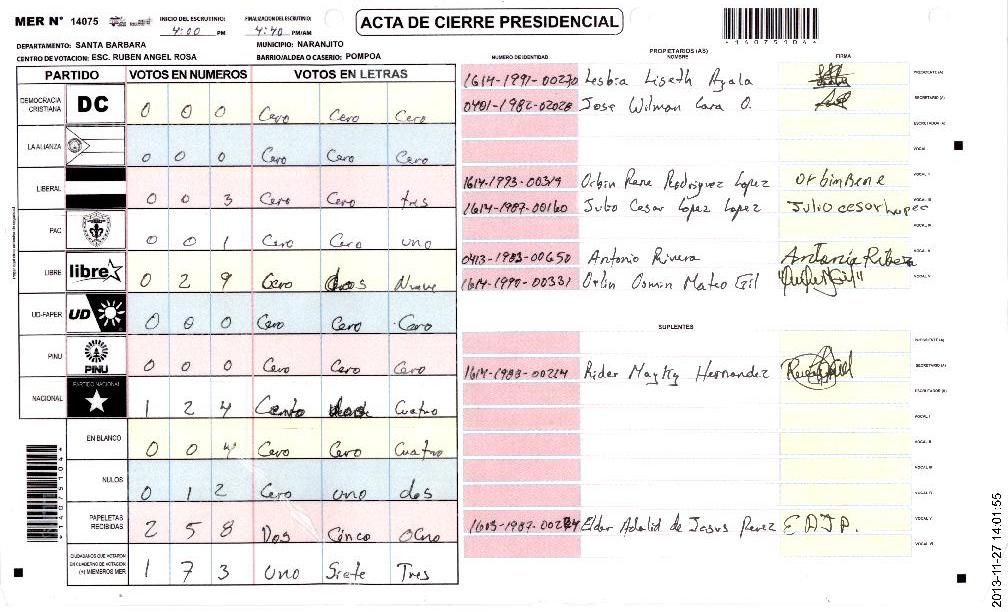 MER N° 14075 INICIO DEL ESCRUTINIO: 4:00 PM FINALIZACION DEL ESCRUTINIO: 4:40 PM/AM
ACTA DE CIERRE PRESIDENCIAL
DEPARTAMENTO: SANTA BARBARA MUNICIPIO: NARANJITO
CENTRO DE VOTACION: ESC. RUBEN ANGEL ROSA BARRIO/ALDEA O CASERIO: POMPOA
PARTIDO VOTOS EN NUMEROS VOTOS EN LETRAS
DEMOCRACIA CRISTIANA DC 0 0 0 Cero Cero Cero
LA ALIANZA 0 0 0 Cero Cero Cero
LIBERAL 0 0 3 Cero Cero tres
PAC 0 0 1 Cero Cero uno
LIBRE libre 0 2 9 Cero dos Nueve
UD-FAPER UD 0 0 0 Cero Cero Cero
PINU PINU 0 0 0 Cero Cero Cero
NACIONAL PARTIDO NACIONAL 1 2 4 Cuatro
EN BLANCO 0 0 4 Cero Cero Cuatro
NULOS 0 1 2 Cero uno dos
PAPELETAS RECIBIDAS 2 5 8 Dos Cinco Ocho
CIUDADANOS QUE VOTARON EN CUADERNO DE VOTACION (+) MIEMBROS MER 1 7 3 Uno Siete Tres
PROPIETARIOS (AS)
NUMERO DE IDENTIDAD NOMBRE FIRMA
1614-1991-00270 Lesbia Liseth Ayala PRESIDENTE (A)
0401-1982-02028 Jose Wilman Lara O. SECRETARIO (A)
ESCRUTADOR (A)
VOCAL I
1614-1993-00319 Orbin Rene Rodriguez Lopez VOCAL II
1614-1987-00160 Julio Cesar Lopez Lopez VOCAL III
VOCAL IV
0413-1983-00650 Antonio Rivera VOCAL V
1614-1990-00331 Orlin Osmin Mateo Gil
SUPLENTES
PRESIDENTE (A)
1614-1988-00224 Rider Hernandez SECRETARIO (A)
ESCRUTADOR (A)
VOCAL I
VOCAL II
VOCAL III
VOCAL IV
Elder Adalid de Jesus Perez E A J P. VOCAL V
VOCAL VI
2013-11-27 14:01:55